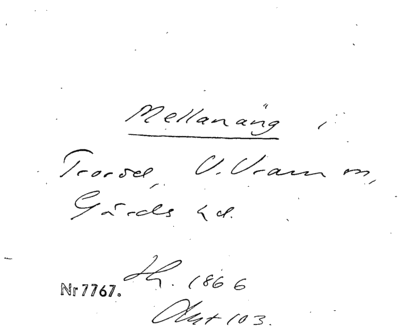 Mellanäng i
Tvaröd, V. Vram sn,
Gärds hd.
Jb. 1866
Nr 7767. Akt 103.